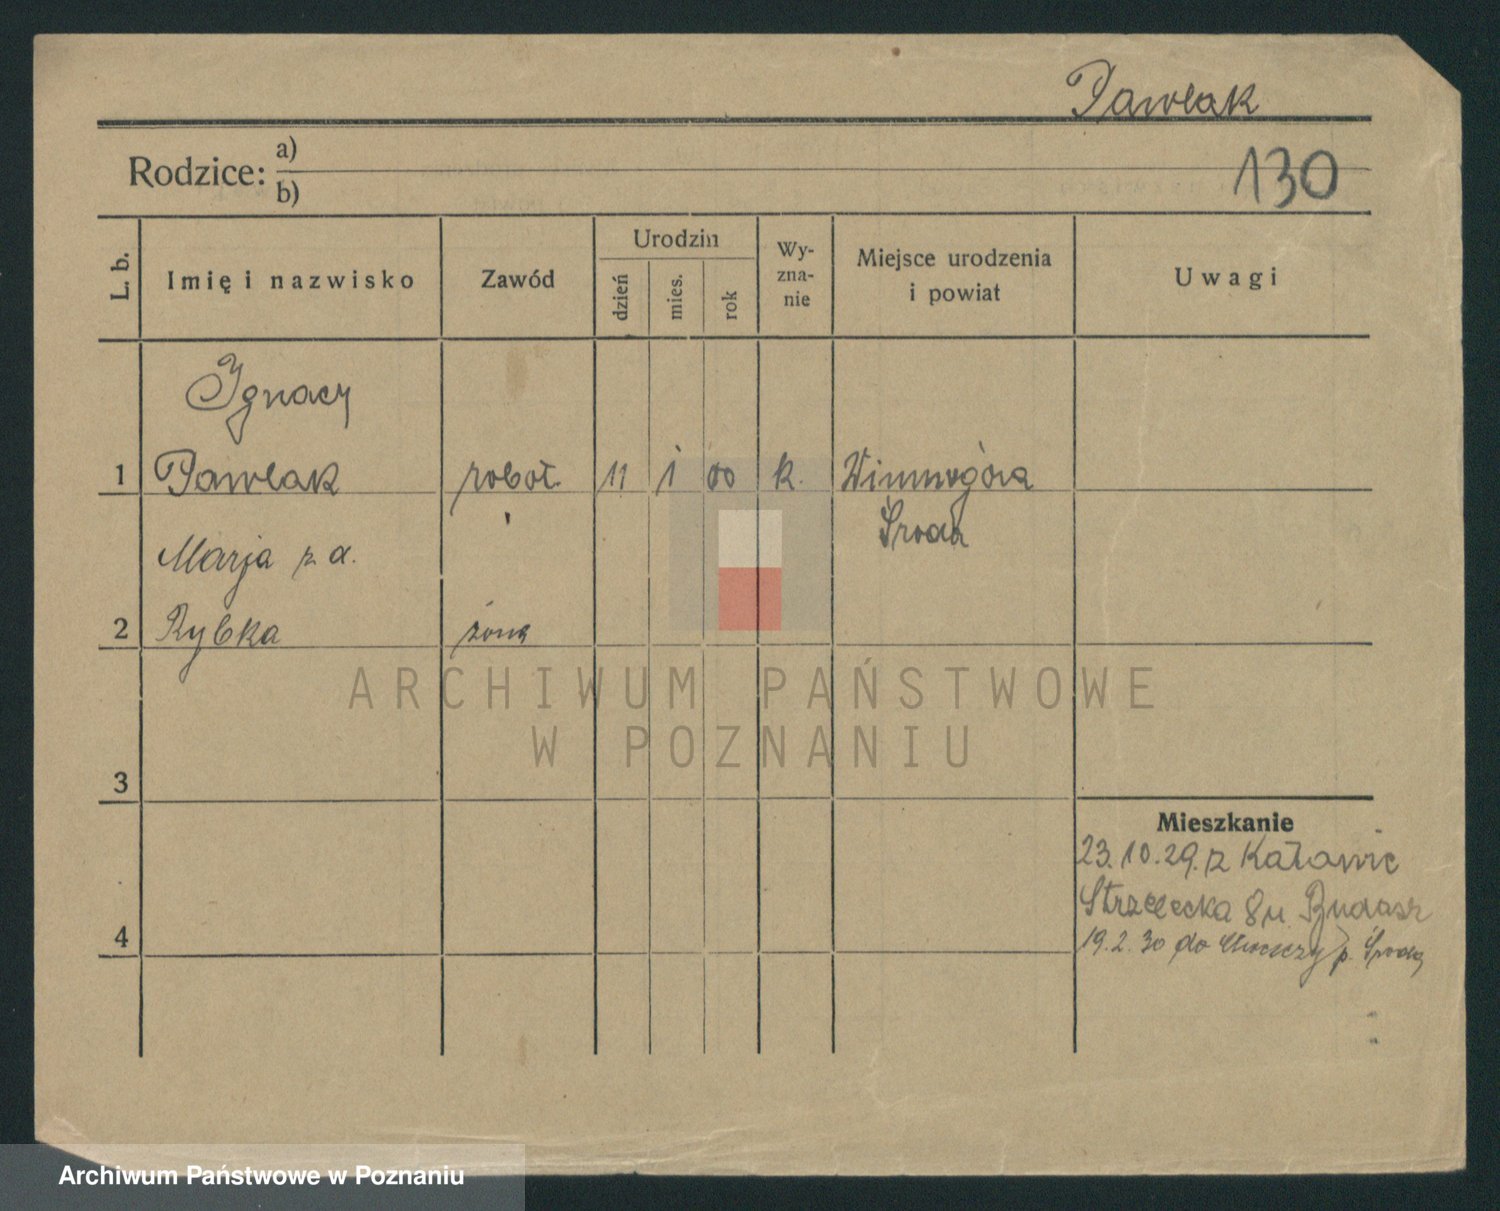 Pawlak
Rodzice: a)
b)
130
L. b.
Imię i nazwisko
Zawód
Urodzin
dzień
mies.
rok
Wy-
zna-
nie
Miejsce urodzenia
i powiat
Uwagi
Ignacy
1 Pawlak robot. 11 1 00 k. Winnogóra
Środa
Marja z d.
2 Rybka żona
ARCHIWUM PAŃSTWOWE
W POZNANIU
3
Mieszkanie
23.10.29. z
Strzelecka 8 u.
4
19.2.30 do p. Środa
Archiwum Państwowe w Poznaniu